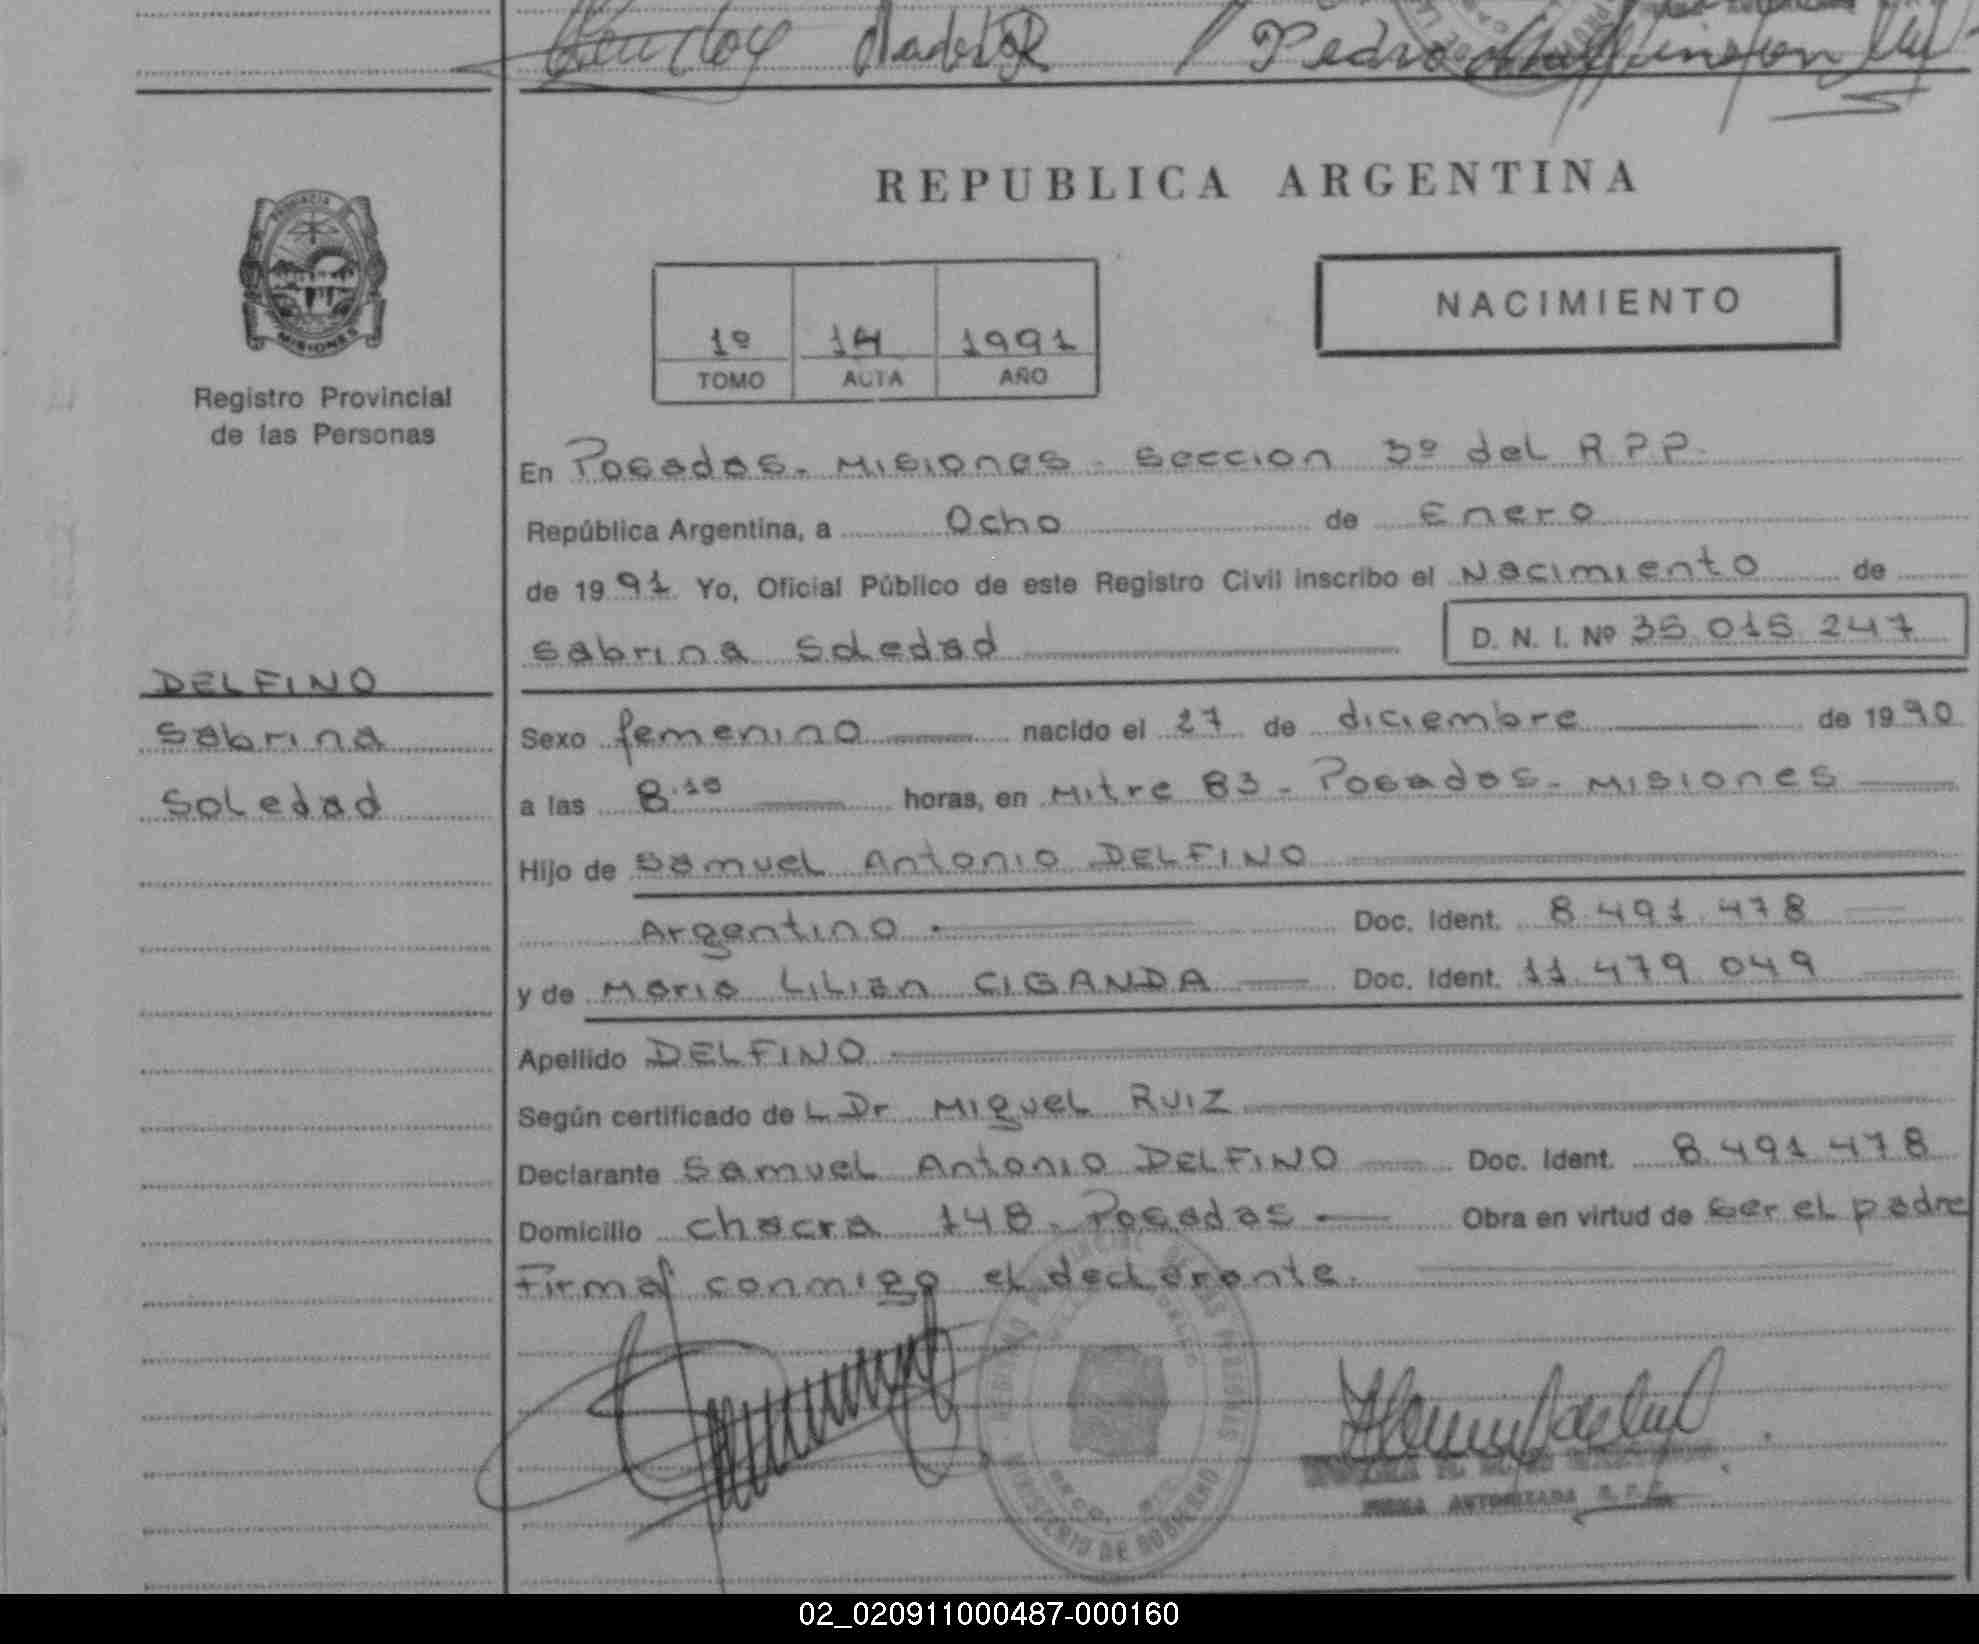 Pedro
REPUBLICA ARGENTINA
PROVINCIA
MISIONES
Registro Provincial
de las Personas
1º 14 1991
TOMO ACTA AÑO
NACIMIENTO
En Posadas - Misiones - Seccion 3º del R P P.
República Argentina, a Ocho de Enero
de 1991 Yo, Oficial Público de este Registro Civil inscribo el Nacimiento de
Sabrina Soledad D. N. I. Nº 35 015 247
DELFINO
Sabrina
Soledad
Sexo femenino nacido el 27 de diciembre de 1990
a las 8.10 horas, en Mitre 83 - Posadas - Misiones
Hijo de Samuel Antonio DELFINO
Argentino - Doc. Ident. 8 491 478
y de Maria Lilian CIGANDA Doc. Ident. 11 479 049
Apellido DELFINO
Según certificado de L Dr Miguel RUIZ
Declarante Samuel Antonio DELFINO Doc. Ident. 8 491 478
Domicilio Chacra 148 - Posadas Obra en virtud de ser el padre
Firma conmigo el declarante.
MINISTERIO DE GOBIERNO
FIRMA AUTORIZADA R. P. P.
02_020911000487-000160